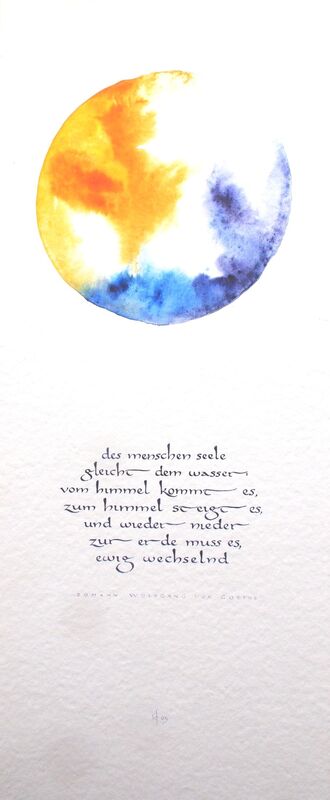 des menschen seele
gleicht dem wasser:
vom himmel kommt es,
zum himmel steigt es,
und wieder nieder
zur erde muss es,
ewig wechselnd
JOHANN WOLFGANG VON GOETHE